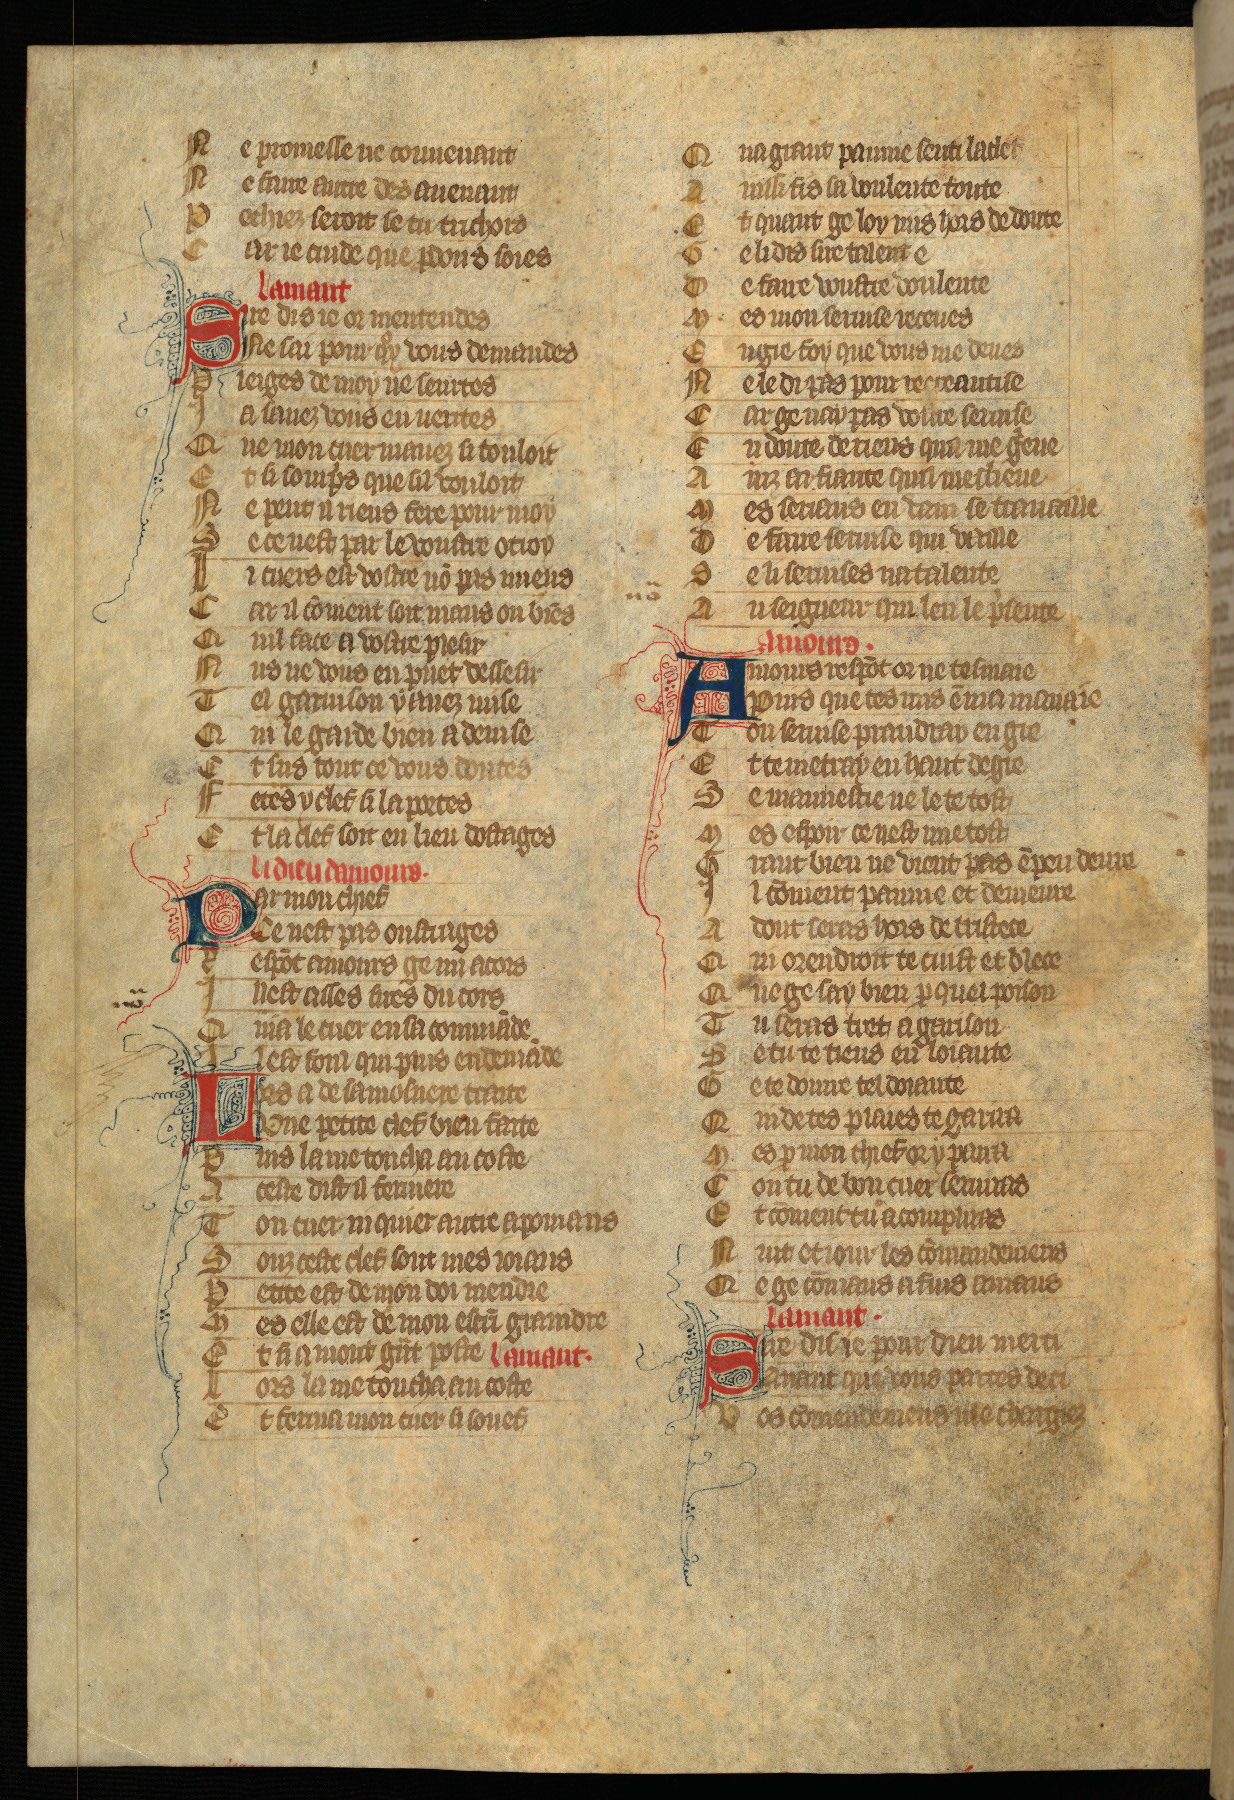 Ne promesse ne conuenant
Ne faire autre des auenant
Pechiez seroit se tu trichors
Car ie cuide que .pdons soies
Lamant
Sire dis ie or mentendes
Ne sai pour qoy vous demandes
Pleiges de moy ne seurtes
Ja sauez vous en verites
Que mon cuer mauez si touloit
Et si sorpͥs que sil vouloit
Ne peut il riens fere pour moy
Se ce nest par le voustre otroy
Li cuers est vostre nō pas miens
Car il cōuient soit maus ou biēs
Quil face a vostre plesir
Nus ne vous en puet dessesir
Tel garnison y auez mise
Qui le garde bien a deuise
Et sus tout ce vous doutes
Fetes y clef si la portes
Et la clef soit en lieu dostages
Li dieu damours.
Par mon chief
Ce nest pas oustrages
Respōt amours ge mi acors
Il est asses sires du cors
Qui a le cuer en sa commāde
Il est fom qui plus en demāde
Lors a de samosnere traite
Une petite clef bien faite
Puis la me toucha au coste
A ceste dist il fermere
Ton cuer ni quier autre apoiaus
Souz ceste clef sont mes ioiaus
Petite est de mon doi mendre
Mes elle est de mon estui graindre
Et si a mout gñt poste Lamant.
Lors la me toucha au coste
Et ferma mon cuer si souef
Qua grant painne senti la clef
Ainsi fis sa voulente toute
Et quant ge loy mis hors de doute
Ge li dis sire talent e
De faire voustre voulente
Mes mon seruise receues
En gre foy que vous me deues
Ne le di pas pour recreantise
Car ge nay pas vostre seruise
En doute de riens qui me g̃eue
Ainz ai fiance quil mesleue
Mes serians en vain se trauaille
De faire seruise qui vaille
Se li seruises natalente
Au seigneur qui len le p̃sente
nō
Amours.
Amours respōt or ne tesmaie
Puis que tes mis ē ma manaie
Ton seruise prandray en gre
Et te metray en haut degre
Se mauuestie ne le te tost
Mes espoir ce nest mie tost
Grant bien ne vient pas ē peu deure
Il cōuient painne et demeure
Adont seras hors de tristece
Qui orendroit te cuist et blece
Que ge say bien p quel poison
Tu seras tret a garison
Se tu te tiens en loiaute
Ge te donne tel donante
Qui de tes plaies te garira
Mes p mon chief or y paira
Con tu de bon cuer seruiras
Et cōment tu acompliras
Nuit et iour les cōmandemens
Que ge cōmans a fins amans
Lamant.
Sire dis ie pour dieu merci
Auant que vous partes deci
Vos cōmendemens me chargiez